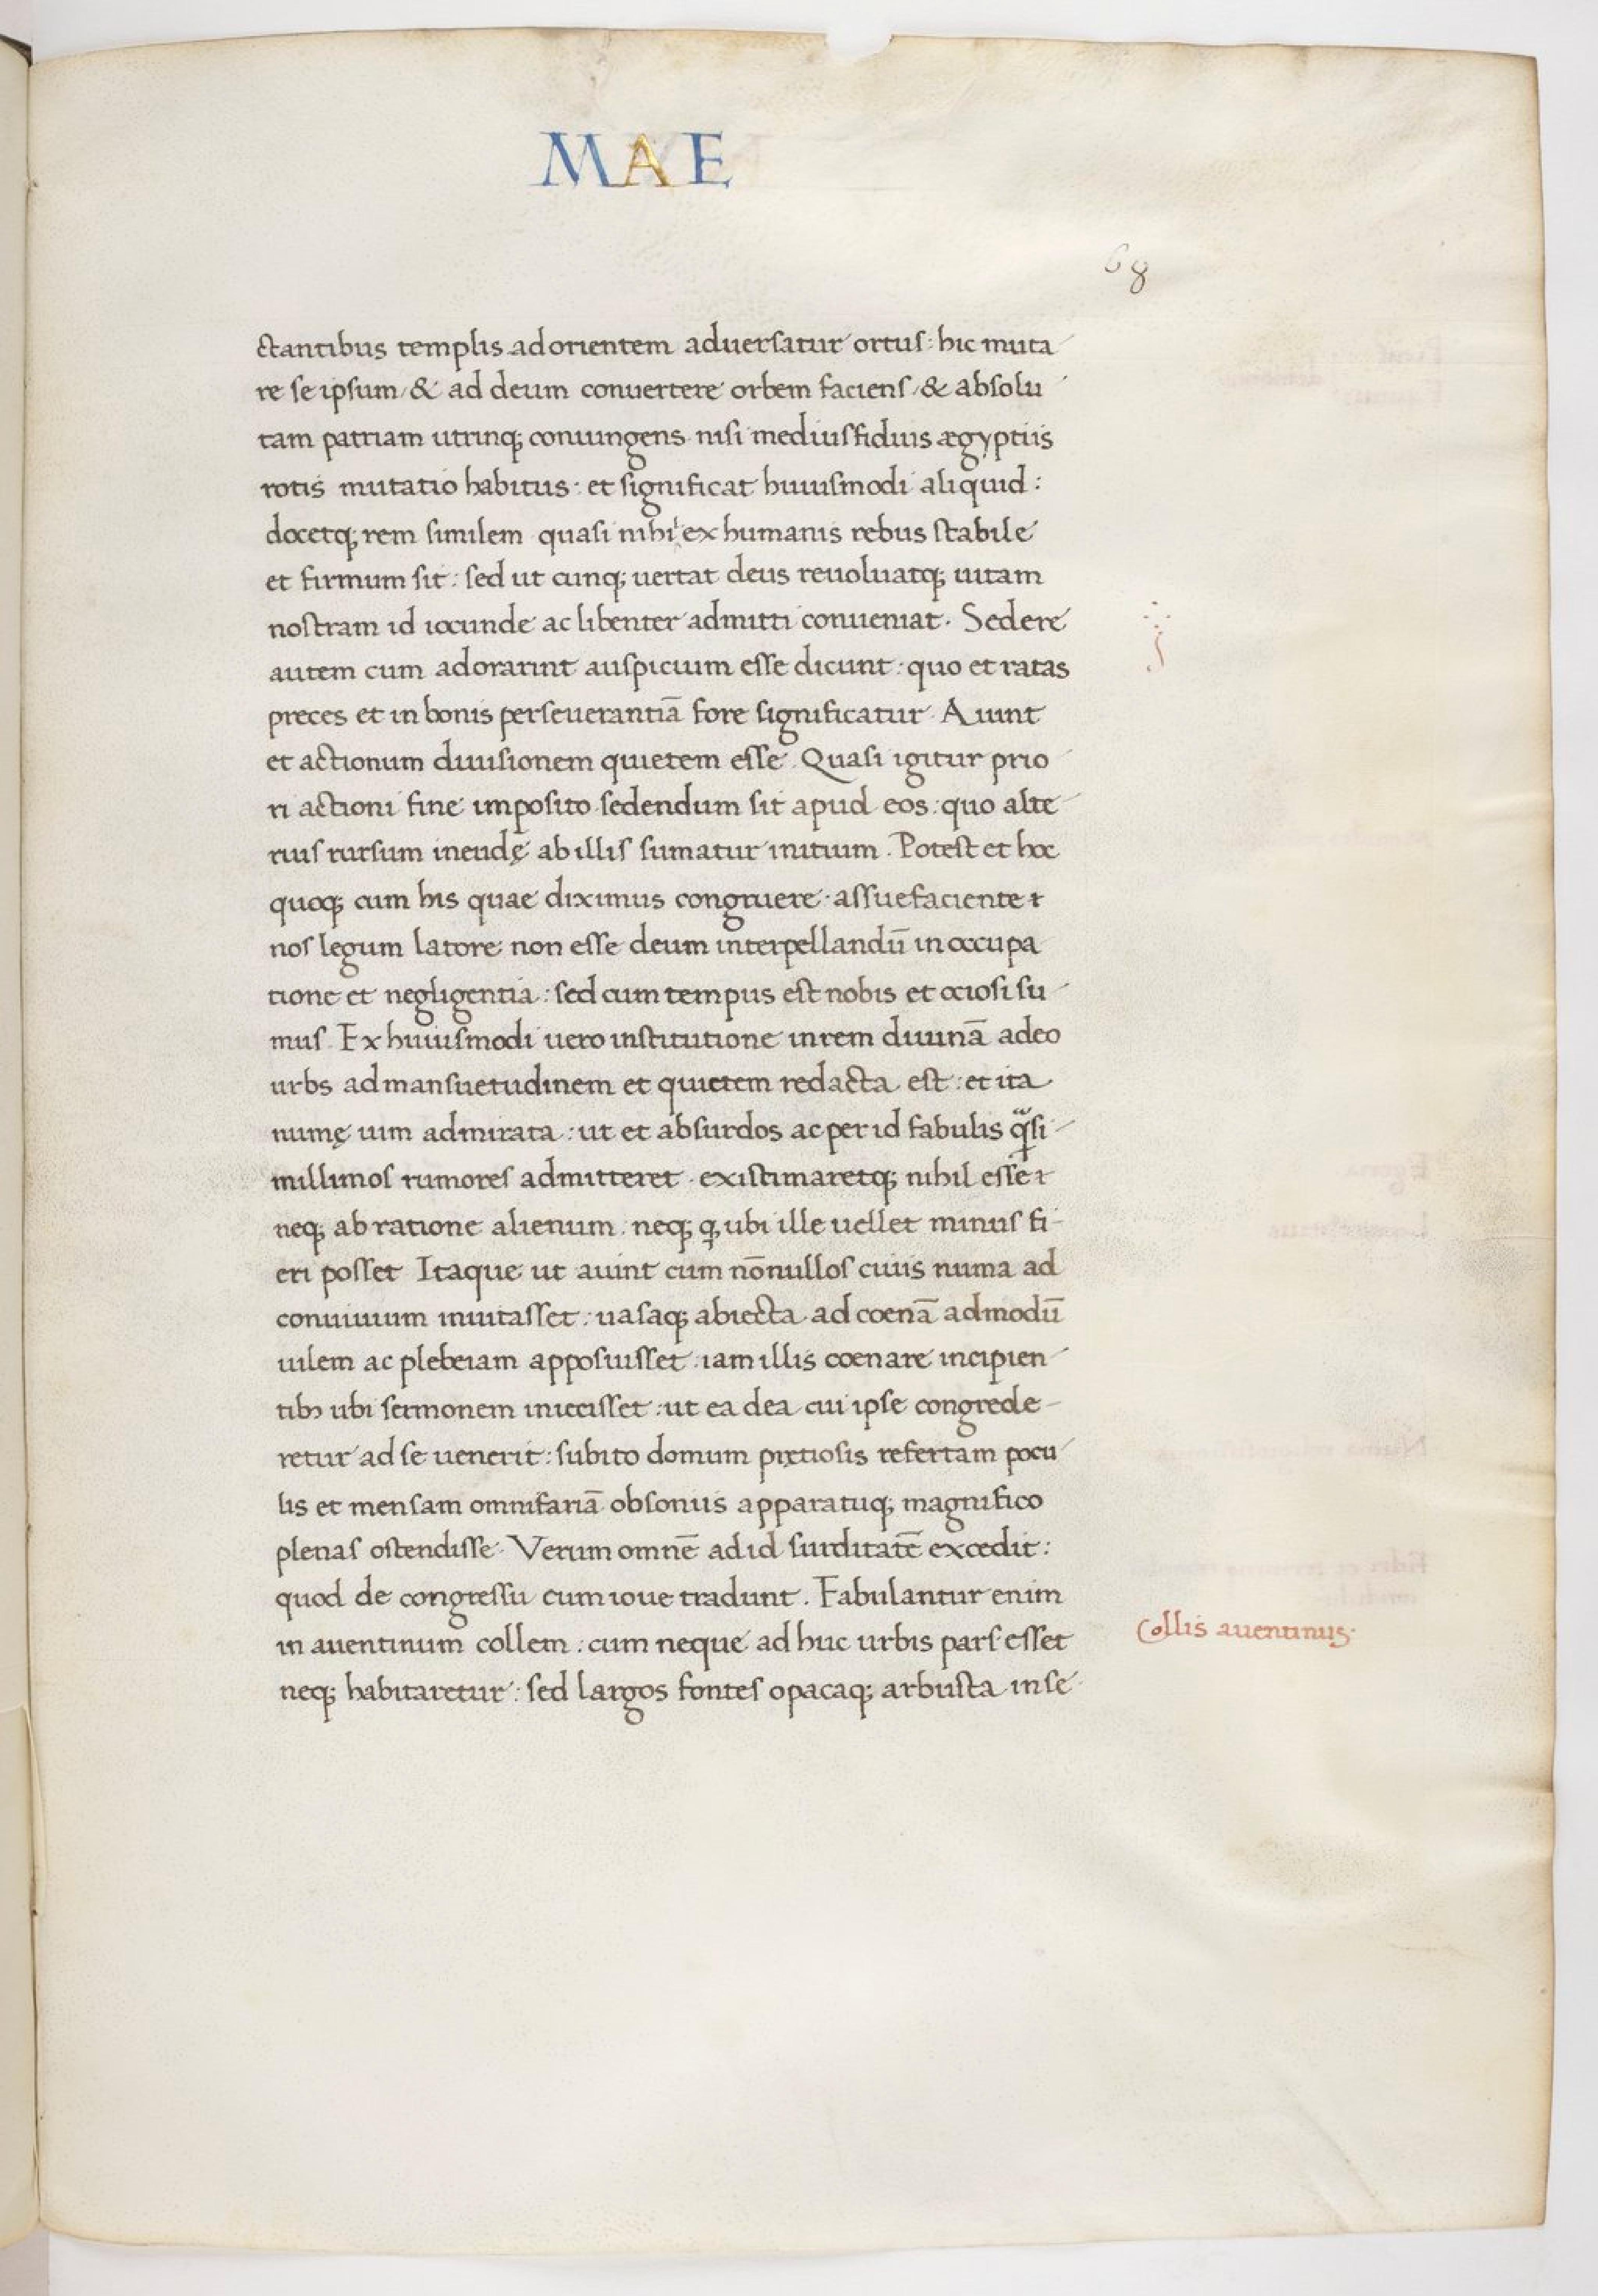 MAE
68
ctantibus templis ad orientem aduersatur ortus: hic muta
re se ipsum / & ad deum conuertere orbem faciens / & absolu
tam patriam utrinq; coniungens. nisi mediusfidius ægyptiis
rotis mutatio habitus: et significat huiusmodi aliquid:
docetq; rem similem quasi nihil ex humanis rebus stabile
et firmum sit: sed ut cunq; uertat deus reuoluatq; uitam
nostram id iocunde ac libenter admitti conueniat. Sedere
autem cum adorarint auspicium esse dicunt: quo et ratas
preces et in bonis perseuerantiā fore significatur. Aiunt
et actionum diuisionem quietem esse. Quasi igitur prio
ri actioni fine imposito sedendum sit apud eos: quo alte
rius rursum ineudę ab illis sumatur initium. Potest et hoc
quoq; cum his quae diximus congruere: assuefaciente
nos legum latore non esse deum interpellandū in occupa
tione et negligentia: sed cum tempus est nobis et ociosi su
mus. Ex huiusmodi uero institutione in rem diuinā adeo
urbs ad mansuetudinem et quietem redacta est: et ita
numę uim admirata: ut et absurdos ac per id fabulis q̄si
millimos rumores admitteret. existimaretq; nihil esse
neq; ab ratione alienum. neq; q ubi ille uellet minus fi-
eri posset. Itaque ut aiunt cum nōnullos ciuis numa ad
conuiuium inuitasset: uasaq; abiecta ad coenā admodū
uilem ac plebeiam apposuisset: iam illis coenare incipien
tibȝ ubi sermonem iniecisset: ut ea dea cui ipse congrede-
retur ad se uenerit: subito domum pretiosis refertam pocu
lis et mensam omnifariā obsoniis apparatuq; magnifico
plenas ostendisse. Verum omnē ad id surditatē excedit:
quod de congressu cum ioue tradunt. Fabulantur enim
in auentinum collem: cum neque ad huc urbis pars esset
neq; habitaretur: sed largos fontes opacaq; arbusta in se
Collis auentinus.